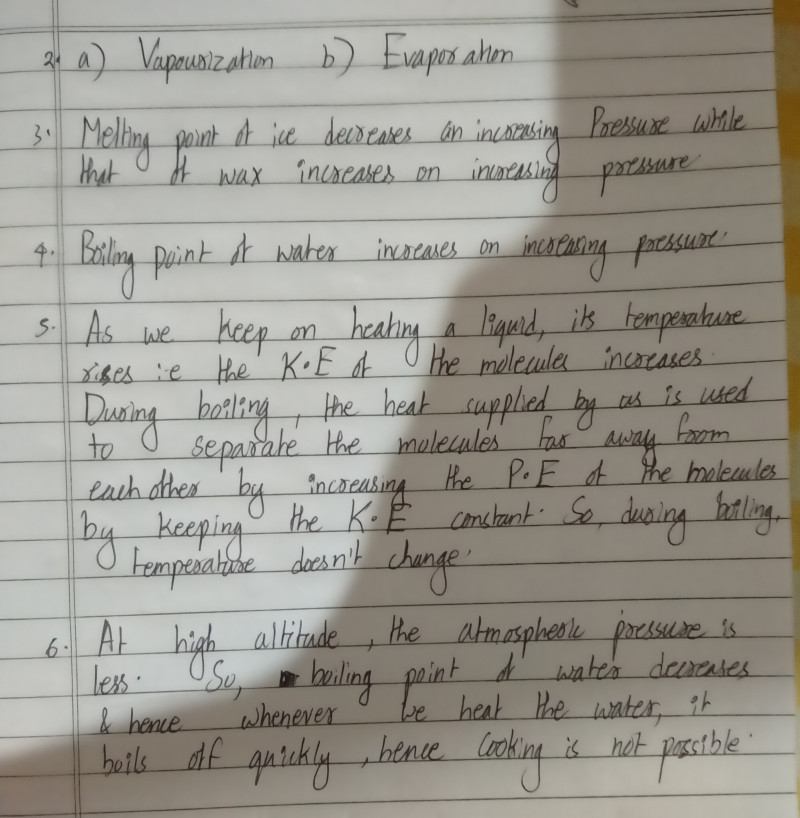 2. a) Vapourization b) Evaporation
3. Melting point of ice decreases on increasing Pressure while
that of wax increases on increasing pressure
4. Boiling point of water increases on increasing pressure.
5. As we keep on heating a liquid, its temperature
rises i.e the K.E of the molecules increases.
During boiling, the heat supplied by us is used
to separate the molecules far away from
each other by increasing the P.E of the molecules
by keeping the K.E constant. So, during boiling,
temperature doesn't change.
6. At high altitude, the atmospheric pressure is
less. So, boiling point of water decreases
& hence whenever we heat the water, it
boils off quickly, hence Cooking is not possible.